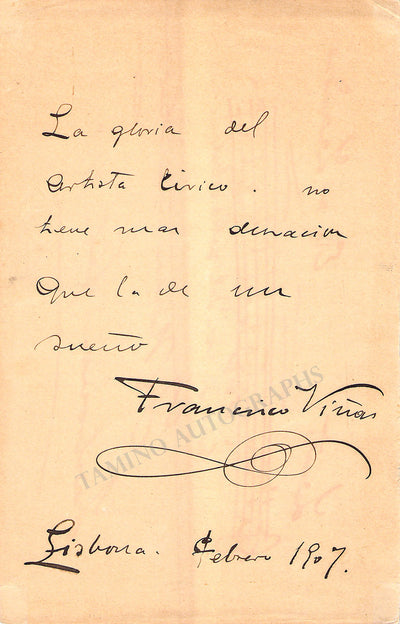 La gloria del
artista lírico. no
tiene mas duracion
que la de un
sueño
Francisco Viñas
TAMINO AUTOGRAPHS
Lisboa. Febrero 1907.